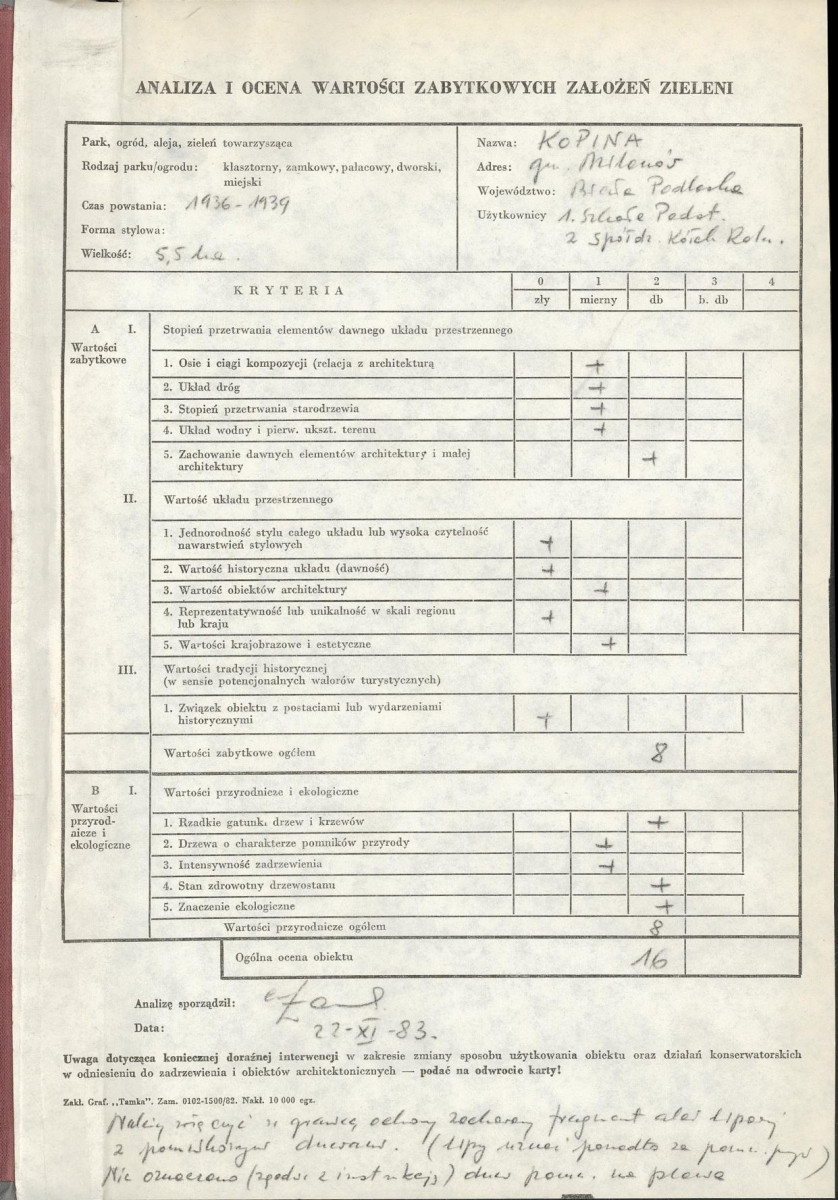 ANALIZA I OCENA WARTOŚCI ZABYTKOWYCH ZAŁOŻEŃ ZIELENI
Park, ogród, aleja, zieleń towarzysząca
Rodzaj parku/ogrodu: klasztorny, zamkowy, pałacowy, dworski,
miejski
Czas powstania: 1936-1939
Forma stylowa:
Wielkość: 5,5 ha.
Nazwa: KOPINA
Adres: gm. Milanów
Województwo: Biała Podlaska
Użytkownicy 1. Szkoła Podst.
2 Spółdz. Kółek Roln.
KRYTERIA 0 1 2 3 4
zły mierny db b. db
A I. Stopień przetrwania elementów dawnego układu przestrzennego
Wartości
zabytkowe
1. Osie i ciągi kompozycji (relacja z architekturą +
2. Układ dróg +
3. Stopień przetrwania starodrzewia +
4. Układ wodny i pierw. ukszt. terenu +
5. Zachowanie dawnych elementów architektury i małej
architektury +
II. Wartość układu przestrzennego
1. Jednorodność stylu całego układu lub wysoka czytelność
nawarstwień stylowych +
2. Wartość historyczna układu (dawność) +
3. Wartość obiektów architektury +
4. Reprezentatywność lub unikalność w skali regionu
lub kraju +
5. Wartości krajobrazowe i estetyczne +
III. Wartości tradycji historycznej
(w sensie potencjonalnych walorów turystycznych)
1. Związek obiektu z postaciami lub wydarzeniami
historycznymi +
Wartości zabytkowe ogółem 8
B I. Wartości przyrodnicze i ekologiczne
Wartości
przyrod-
nicze i
ekologiczne
1. Rzadkie gatunki drzew i krzewów +
2. Drzewa o charakterze pomników przyrody +
3. Intensywność zadrzewienia +
4. Stan zdrowotny drzewostanu +
5. Znaczenie ekologiczne +
Wartości przyrodnicze ogółem 8
Ogólna ocena obiektu 16
Analizę sporządził:
Data: 22-XI-83.
Uwaga dotycząca koniecznej doraźnej interwencji w zakresie zmiany sposobu użytkowania obiektu oraz działań konserwatorskich
w odniesieniu do zadrzewienia i obiektów architektonicznych — podać na odwrocie karty!
Zakł. Graf. „Tamka". Zam. 0102-1500/82. Nakł. 10 000 egz.
Należy w granicę ochrony zachowany fragment alei lipowej
z pomnikowym drzewem. (lipy uznać ponadto za pomn. przyr)
Nie oznaczono (zgodnie z instrukcją) drzew pomn. na planie